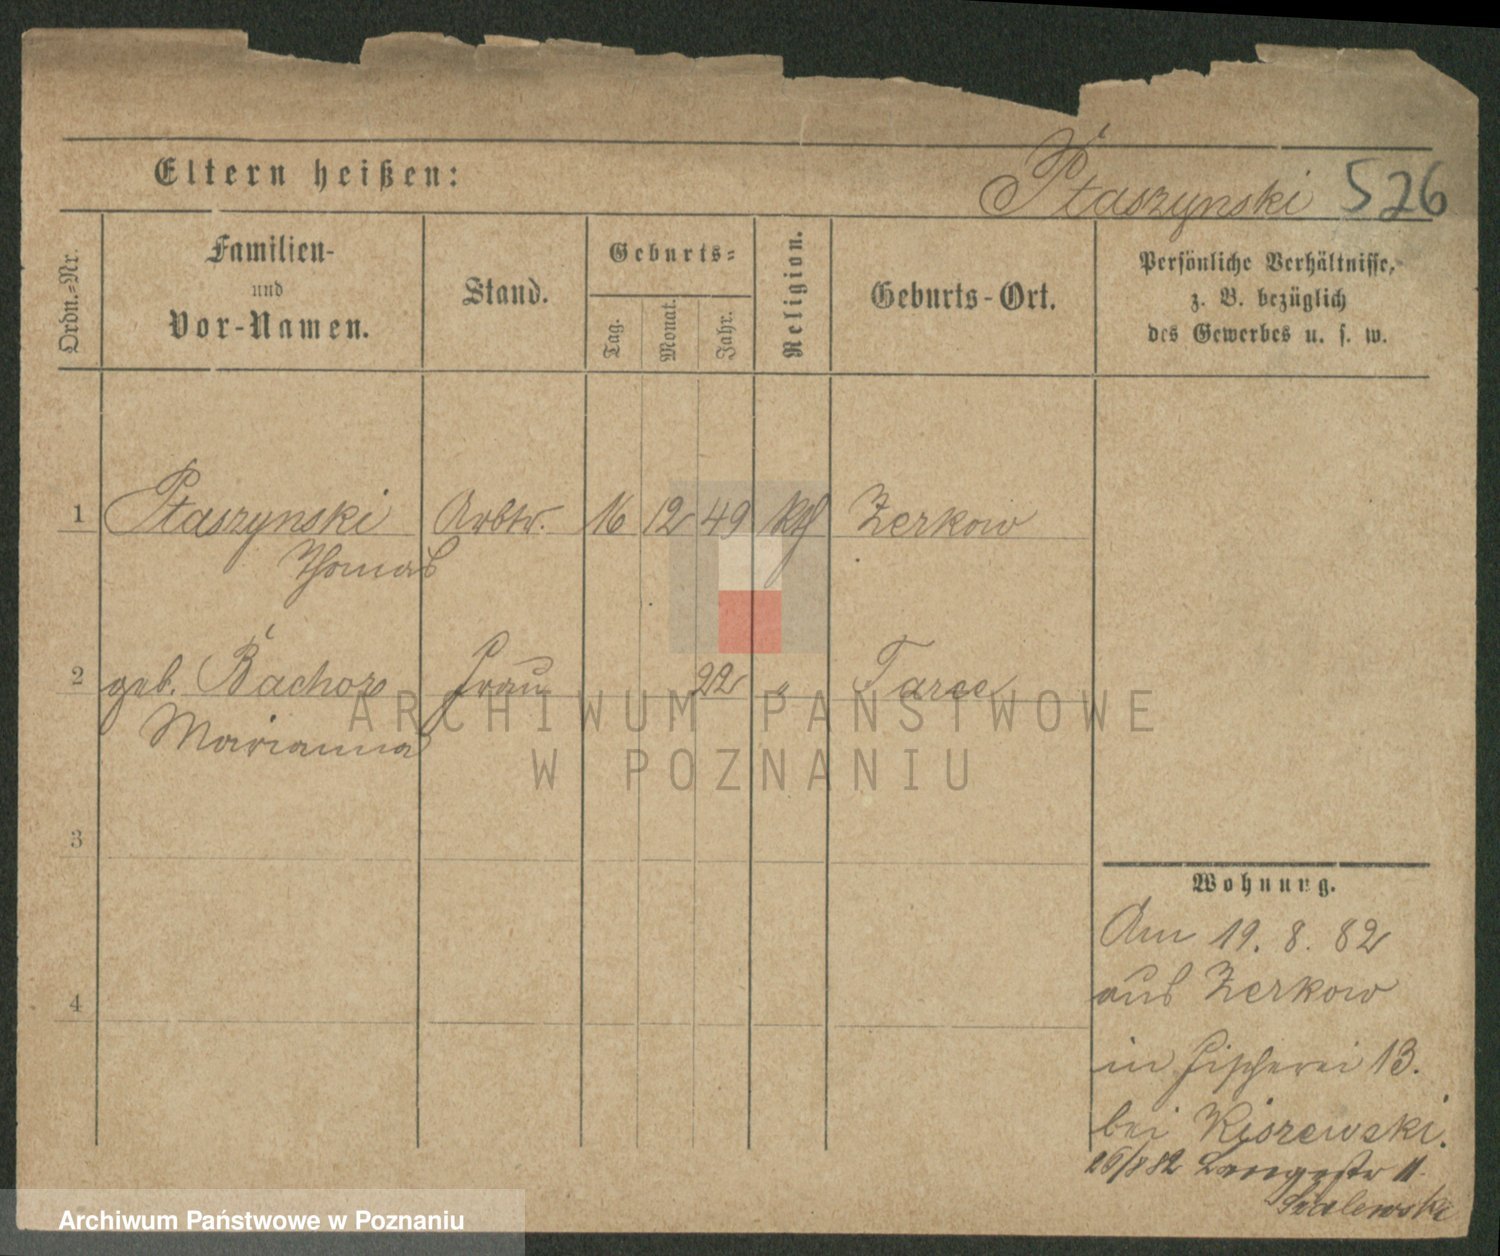 Eltern heißen:
Ptaszynski 526
Ordn.-Nr.
Familien-
und
Vor-Namen.
Stand.
Geburts-
Tag.
Monat.
Jahr.
Religion.
Geburts-Ort.
Persönliche Verhältnisse,
z. B. bezüglich
des Gewerbes u. s. w.
1 Ptaszynski Arbtr. 16 12 49 kth Zerkow
Thomas
2 geb. Bachorz Frau 22 " Tarce
Marianna
ARCHIWUM PAŃSTWOWE
W POZNANIU
3
4
Wohnung.
Am 19. 8. 82
aus Zerkow
in Fischerei 13.
bei Kiszewski.
26/8 82 Langestr 11.
Szalewski
Archiwum Państwowe w Poznaniu